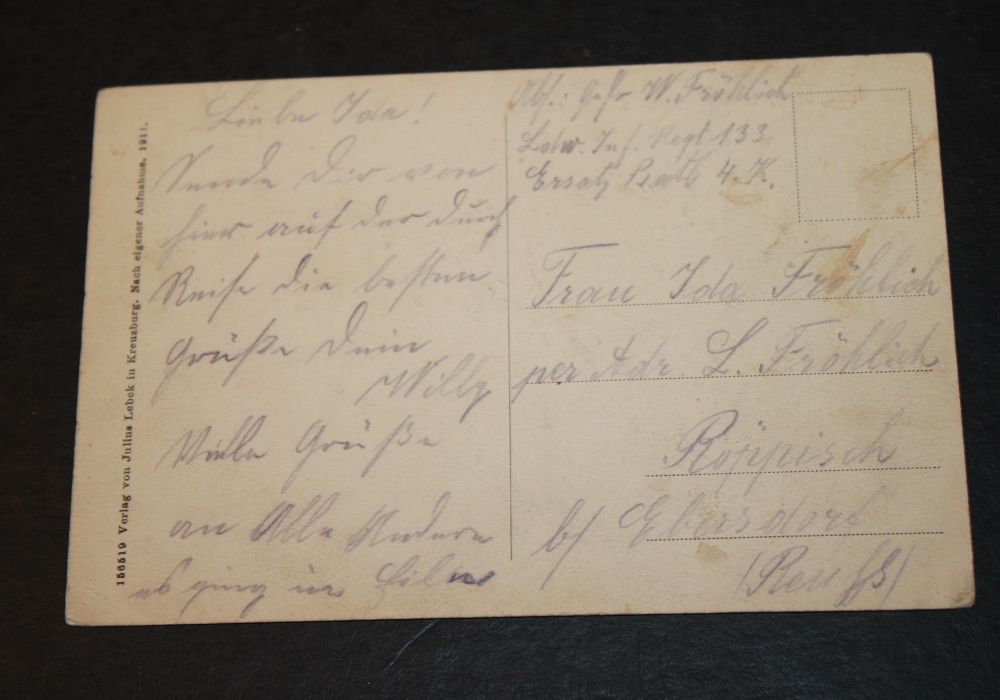 Liebe Ida!
Sende Dir von
hier auf der Durch
Reise die besten
Grüße Dein
Willy
Viele Grüße
an Alle Andern
es ging in Eile
Abs.: Gefr W. Fröhlich
Ldw. Inf. Regt 133
Ersatz Batl. 4. K.
Frau Ida Fröhlich
per Adr. L. Fröhlich
Röppisch
b/ Ebersdorf
(Reuß)
156519 Verlag von Julius Lebek in Kreuzburg. Nach eigener Aufnahme. 1911.